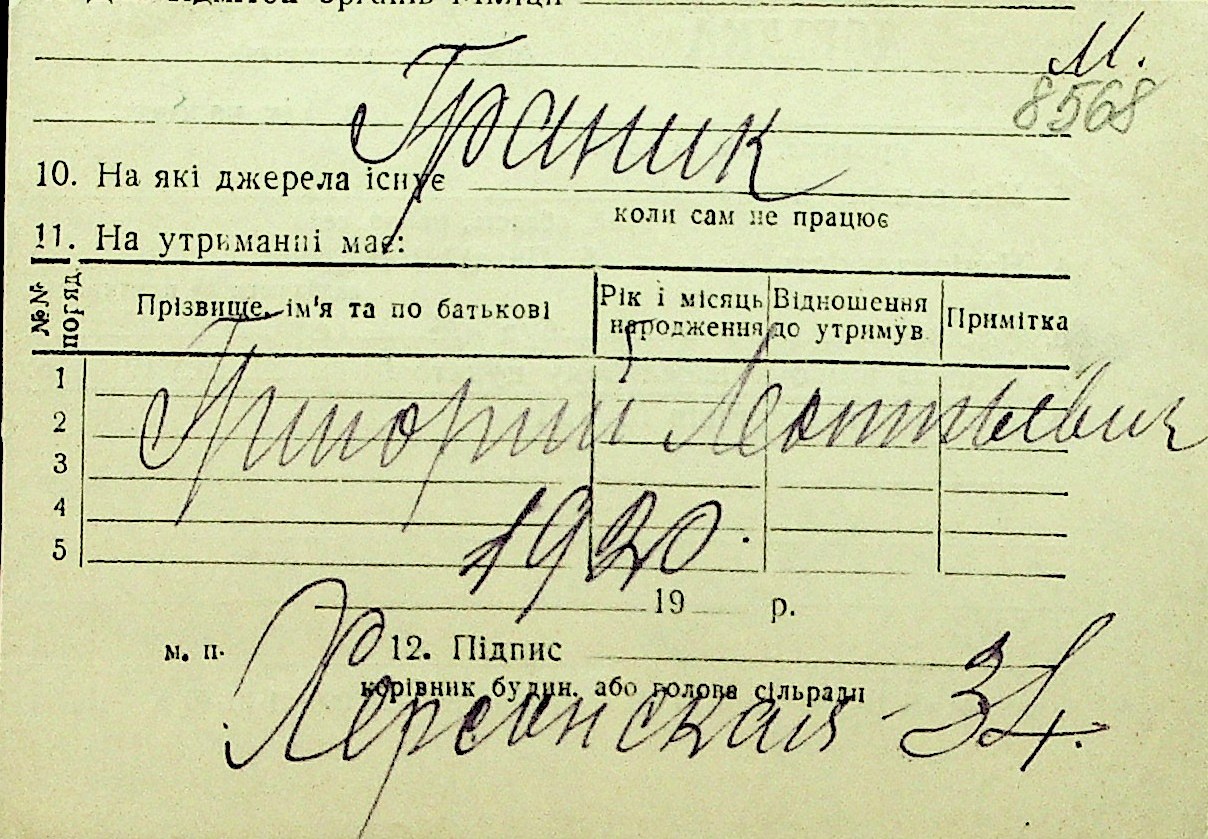 органів міліції
М.
8568
Граник
10. На які джерела існує
коли сам не працює
11. На утриманні має:
№№ поряд.
Прізвище, ім'я та по батькові
Рік і місяць народження
Відношення до утримув.
Примітка
1
Григорий Леонтьевич
2
3
4
5
1920.
19 р.
м. п.
12. Підпис
керівник будин. або голова сільради
Херсонская 34.